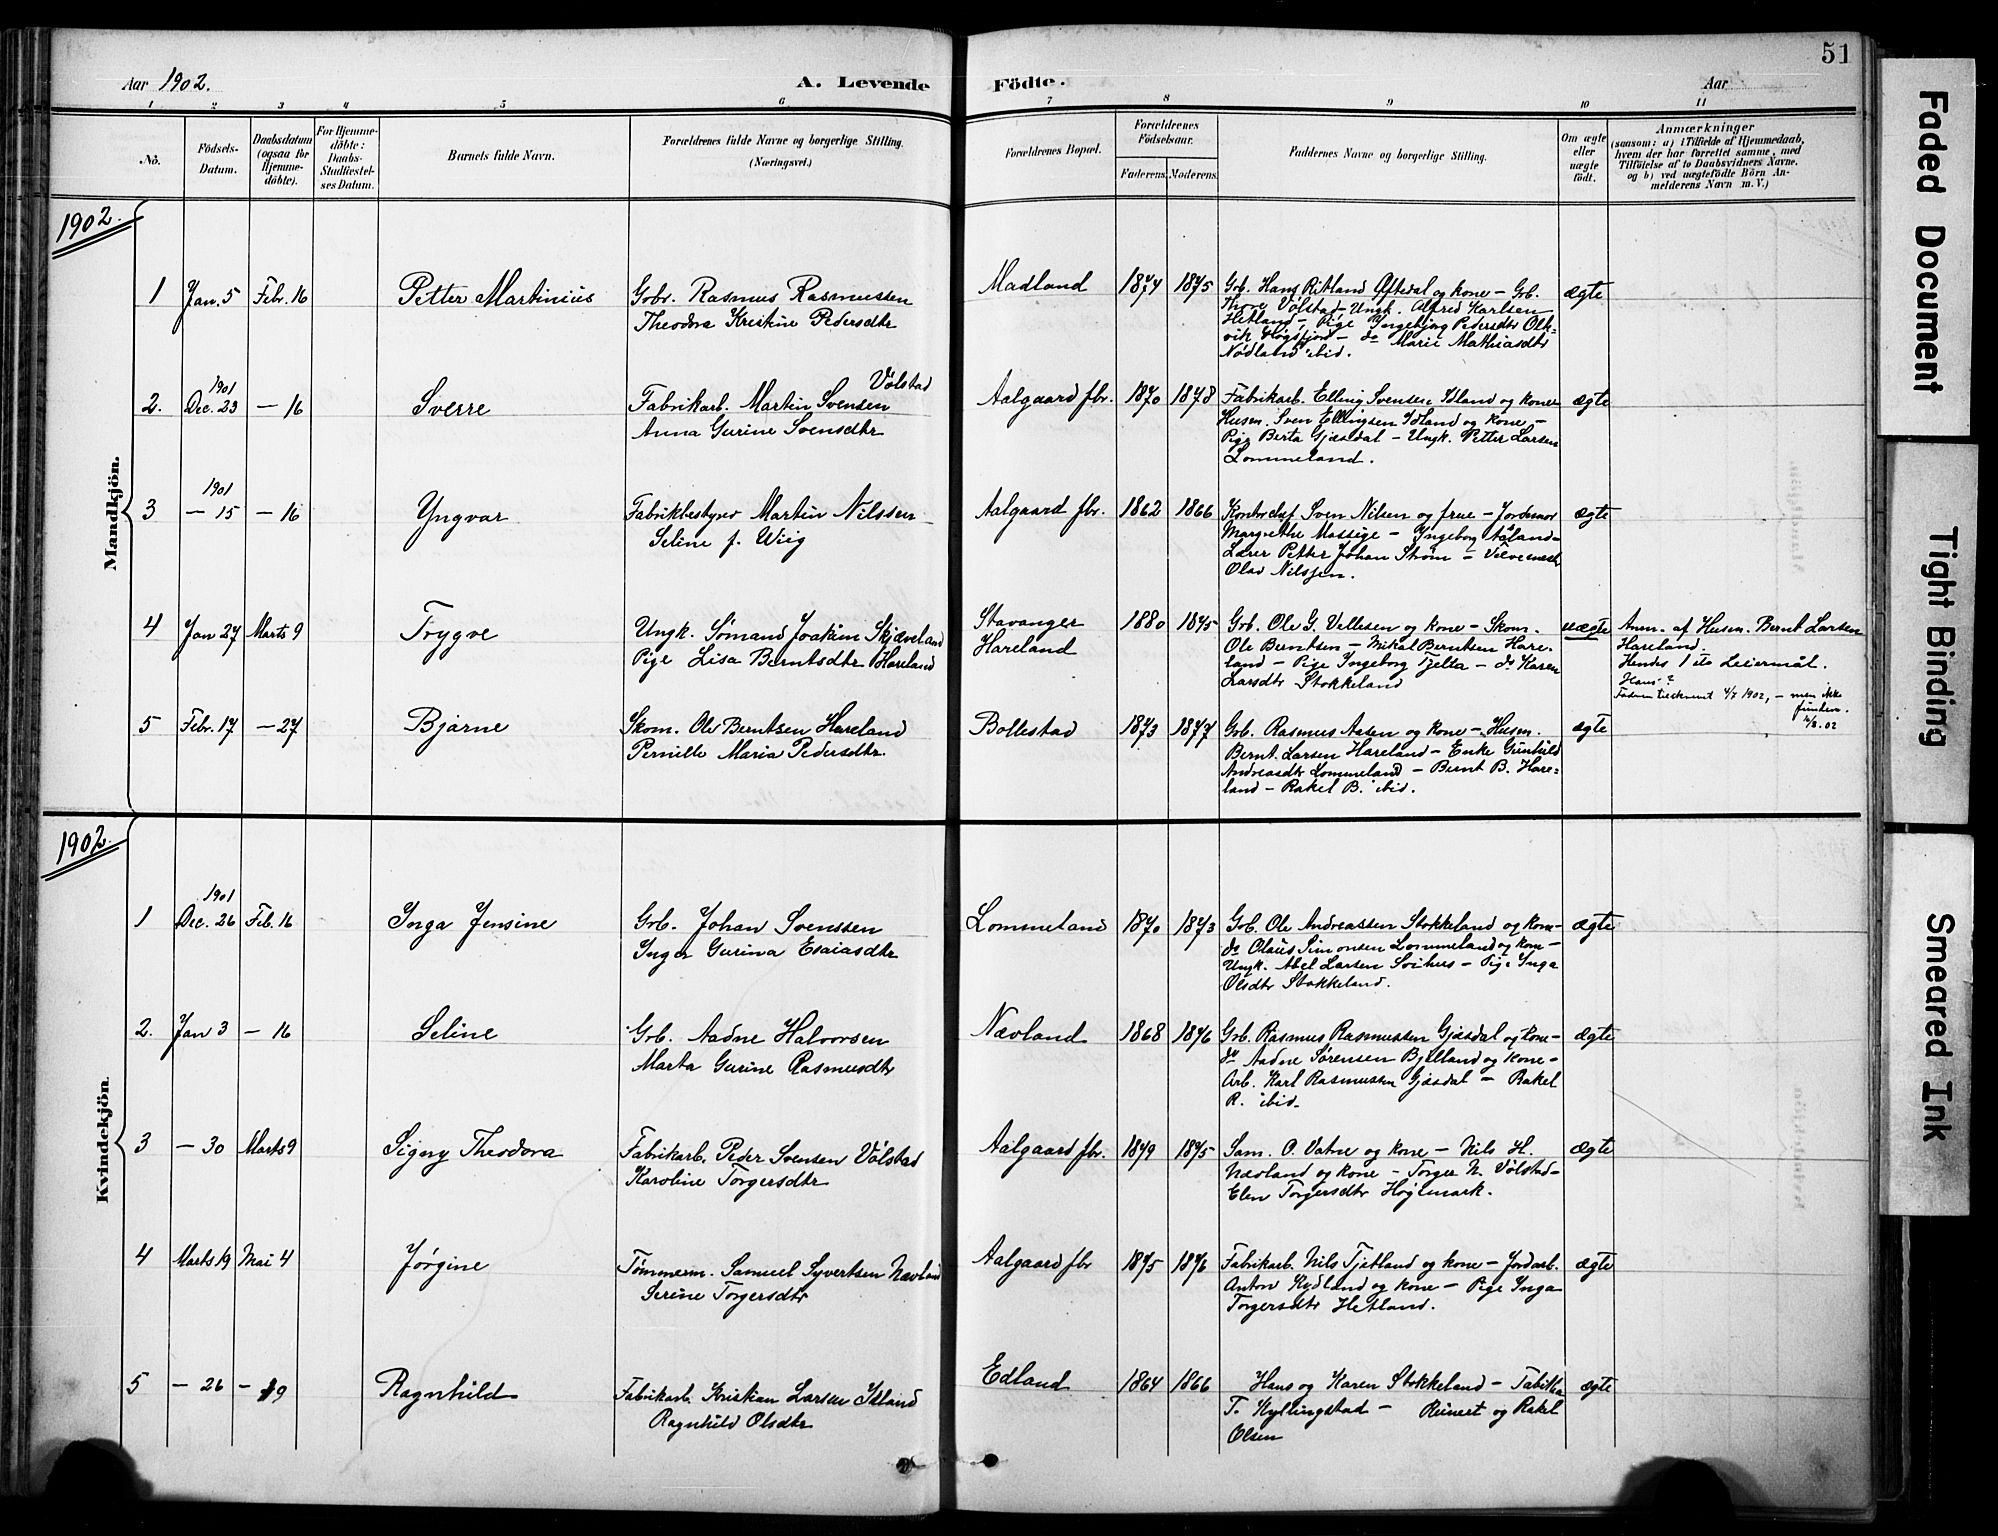 51
Aar 1902.
A. Levende
Födte.
Aar
1 2 3 4 5 6 7 8 9 10 11
No.
Födsels-
Datum.
Daabsdatum
(ogsaa for
Hjemme-
döbte).
For Hjemme-
döbte:
Daabs-
Stadfæstel-
ses Datum.
Barnets fulde Navn.
Forældrenes fulde Navne og borgerlige Stilling.
(Næringsvei.)
Forældrenes Bopæl.
Forældrenes
Födselsaar.
Faderens. Moderens.
Faddernes Navne og borgerlige Stilling.
Om ægte
eller
uægte
födt.
Anmærkninger
(saasom: a) i Tilfælde af Hjemmedaab,
hvem der har forrettet samme, med
Tilföielse af to Daabsvidners Navne.
og b) ved uægtefödte Börn An-
melderens Navn m. V.)
1902.
Mandkjön.
1 Jan. 5 Febr. 16 Petter Martinius
Gbr. Rasmus Rasmussen
Theodora Kristine Pedersdtr
Madland 1874 1875
Grb. Hans Ritland Øftedal og kone – Grb.
Thore Vølstad – Ungk. Alfred Karlsen
Hetland –, Pige Ingebjørg Pedersdtr Olk-
vik Høgsfjord – do Marie Mathiasdtr
Nødland ibid.
ægte
2. 1901 Dec. 23 – 16 Sverre
Vølstad
Fabrikarb. Martin Svensen
Anna Gurine Svensdtr
Aalgaard fbr. 1870 1878
Fabrikarb. Elling Svensen Idland og kone
Husm. Sven Ellingsen Idland og kone –
Pige Berta Gjæsdal – Ungk. Petter Larsen
Lommeland.
ægte
3 1901 – 15 – 16 Yngvar
Fabrikbestyrer Martin Nilssen
Seline f. Wiig
Aalgaard fbr. 1862 1866
Kontorchef Sven Nilsen og frue – Jordmor
Margrethe Mossige – Ingeborg Aaland –
Lærer Petter Johan Strøm –
Olav Nilssen.
ægte
4 Jan 27 Marts 9 Trygve
Ungk. Sømand Joakim Skjæveland
Pige Lisa Berntsdtr Hareland
Stavanger
Hareland
1880 1875
Grb. Ole G. Vellesen og kone – Skom.
Ole Berntsen – Mikal Berntsen Hare-
land – Pige Ingeborg Tjelta – do Karen
Larsdtr Stokkeland
uægte
Anm. af Husm. Bernt Larsen
Hareland.
Hendes 1ste Leiermål.
Hans ?
1902, – men ikke
funden.
5 Febr. 17 – 27 Bjarne
Skom. Ole Berntsen Hareland
Pernille Maria Pedersdtr.
Bollestad 1873 1877
Grb. Rasmus Aasen og kone – Husm.
Bernt Larsen Hareland – Enke Gunhild
Andreasdtr Lommeland – Bernt B. Hare-
land – Rakel B. ibid.
ægte
1902.
Kvindekjön.
1 1901 Dec. 26 Feb. 16 Inga Jensine
Grb. Johan Svenssen
Inger Gurina Esaiasdtr
Lommeland 1870 1873
Grb. Ole Andreassen Stokkeland og kone –
do Olaus Simonsen Lommeland og kone –
Ungk. Abel Larsen Svihus – Pige Inga
Olsdtr Stokkeland.
ægte
2. Jan 3 – 16 Seline
Grb. Aadne Halvorsen
Marta Gurine Rasmusdtr
Nævland 1868 1876
Grb. Rasmus Rasmussen Gjæsdal og kone –
do Aadne Sørensen Bjelland og kone –
Arb. Karl Rasmussen Gjæsdal – Rakel
R. ibid.
ægte
3 – 30 Marts 9 Signy Theodora
Fabrikarb. Peder Svensen Vølstad
Karoline Torgersdtr
Aalgaard fbr. 1879 1875
Sam. O. Vatne og kone – Nils H.
Nævland og kone – Torger N. Vølstad –
Elen Torgersdtr Høylmark.
ægte
4 Marts 19 Mai 4 Jørgine
Tømmerm. Samuel Syvertsen Nævland
Serine Torgersdtr
Aalgaard fbr 1875 1876
Fabrikarb. Nils Tjetland og kone – Jordarb.
Anton Kydland og kone – Pige Inga
Torgersdtr Hetland.
ægte
5 – 26 – 19 Ragnhild
Fabrikarb. Kristian Larsen Idland
Ragnhild Olsdtr
Edland 1864 1866
Hans og Karen Stokkeland – Tabitha
T. Kyllingstad – Reinert og Rakel
Olsen
ægte
Faded Document
Tight Binding
Smeared Ink